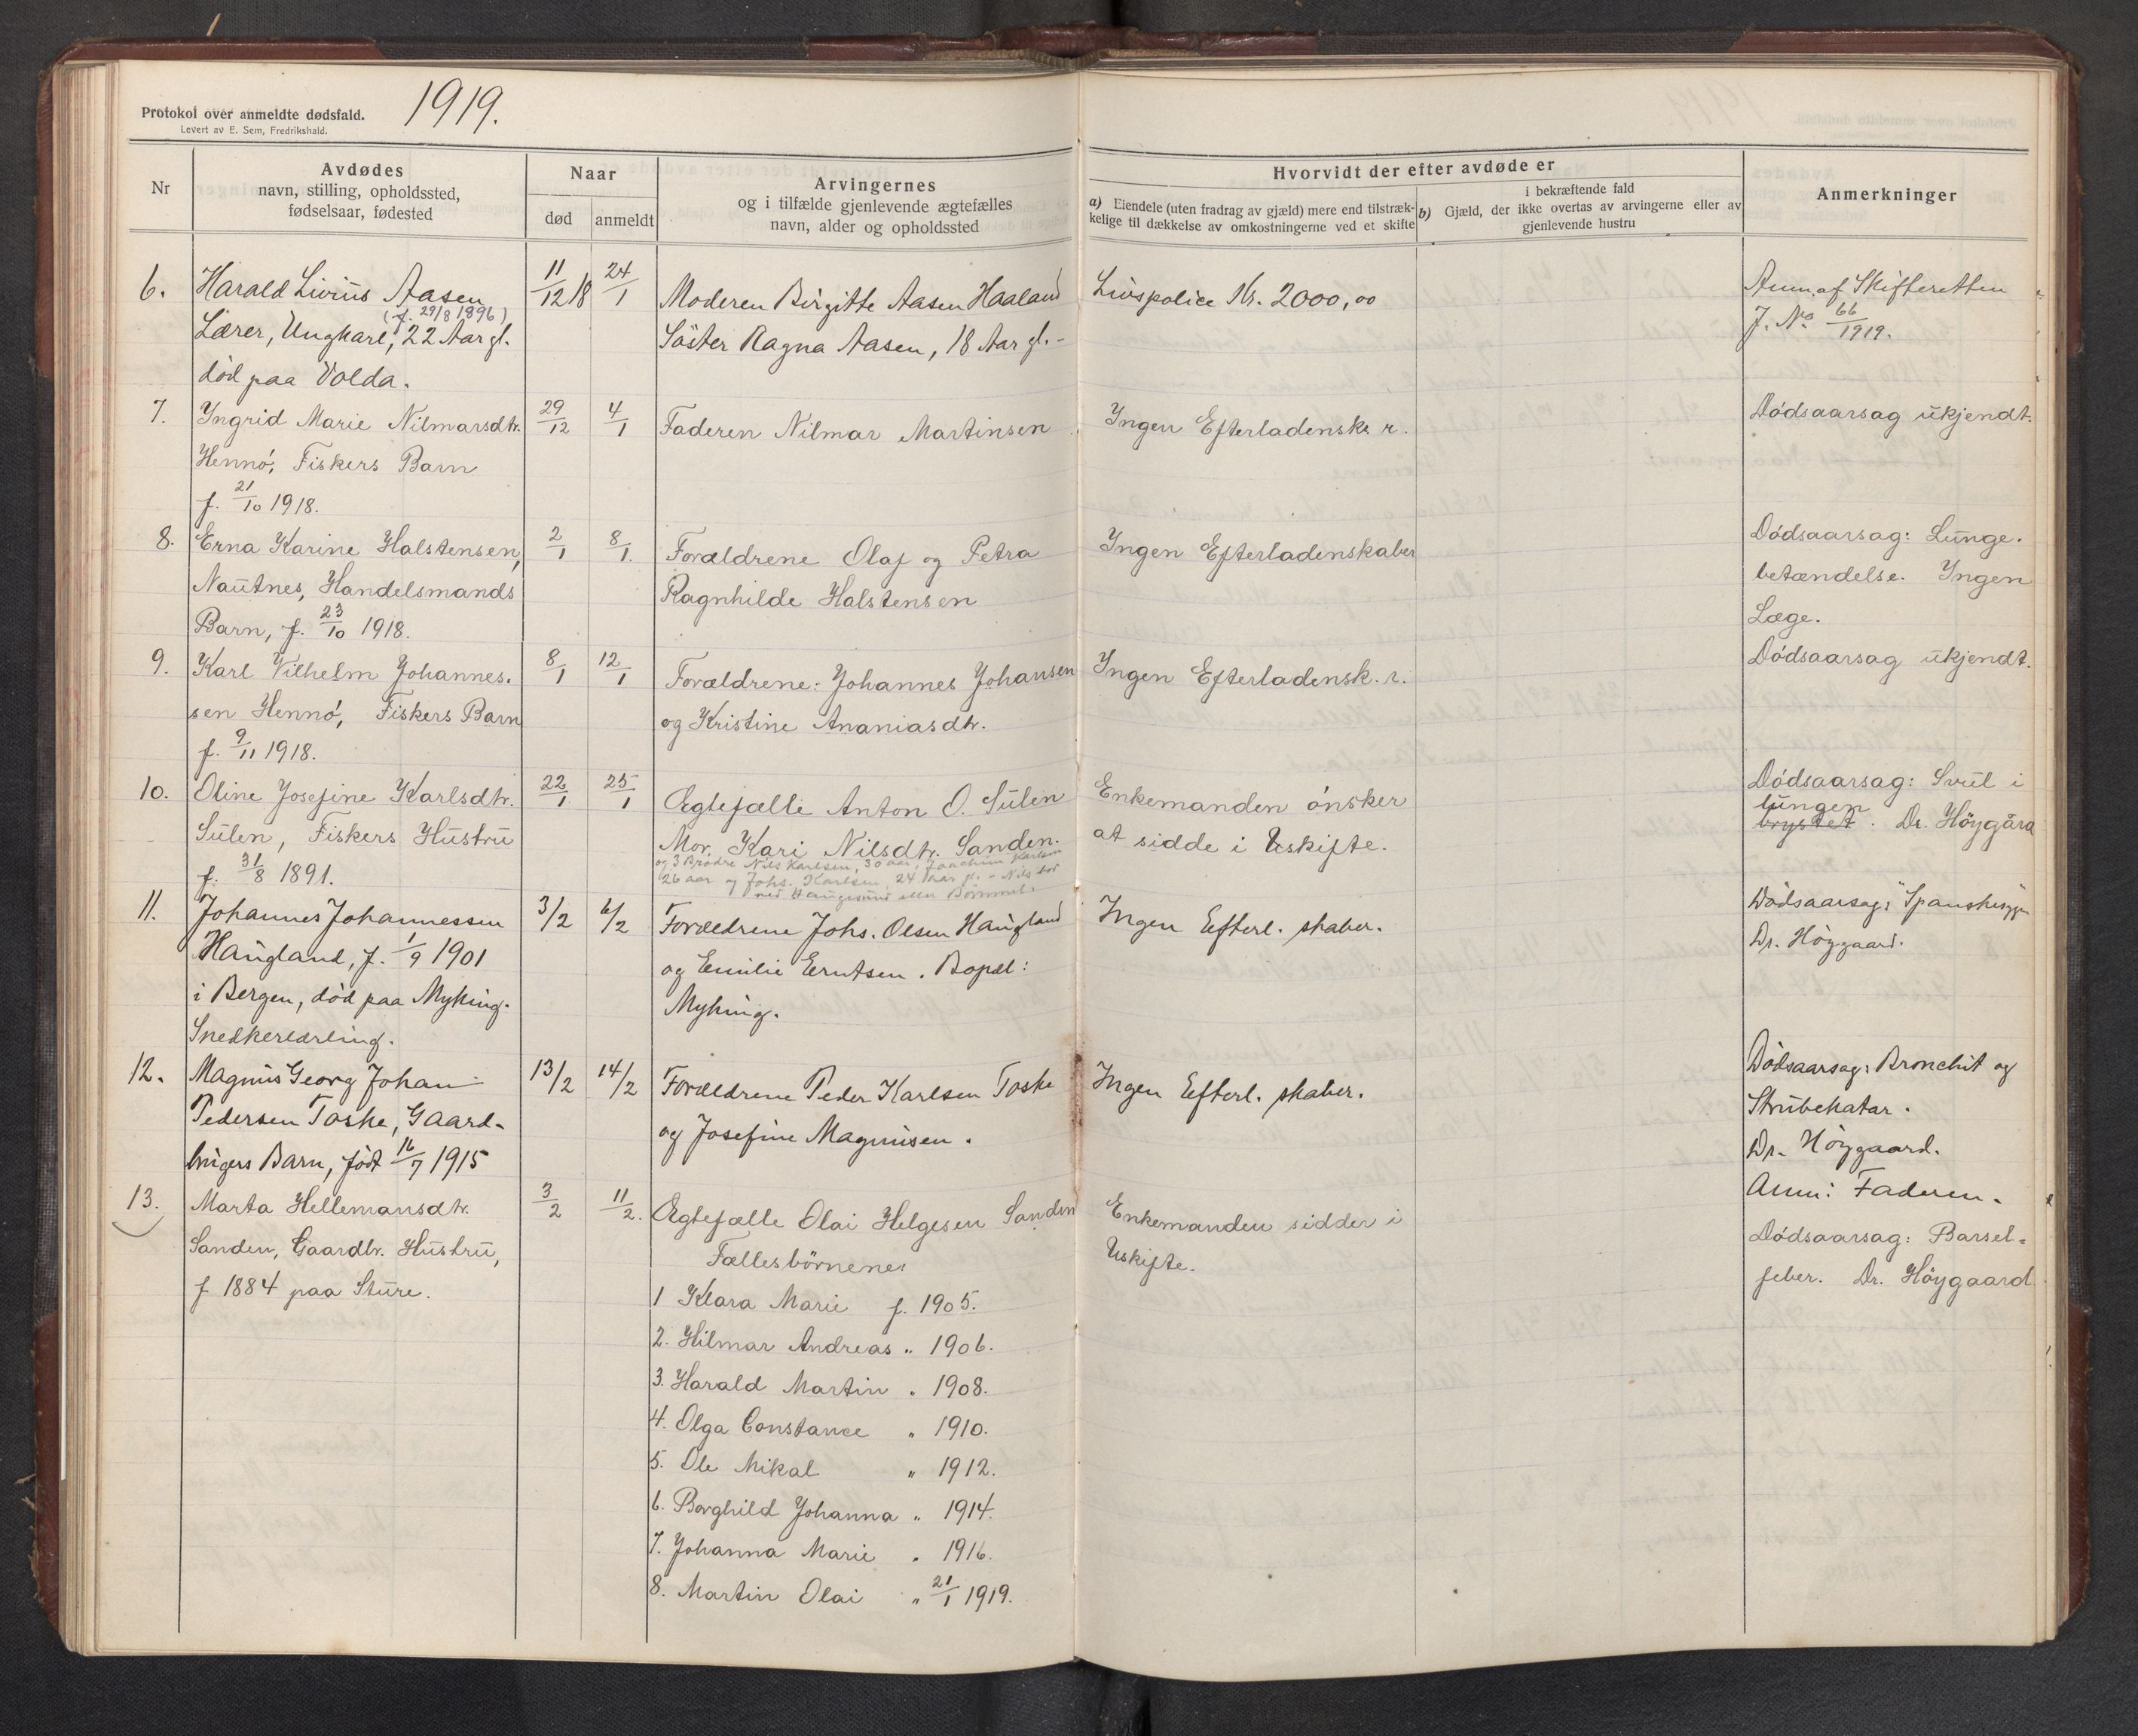 Protokol over anmeldte dødsfald.
Levert av E. Sem, Fredrikshald.
1919.
Nr
Avdødes
navn, stilling, opholdssted,
fødselsaar, fødested
Naar
død
anmeldt
Arvingernes
og i tilfælde gjenlevende ægtefælles
navn, alder og opholdssted
Hvorvidt der efter avdøde er
a) Eiendele (uten fradrag av gjæld) mere end tilstræk-
kelige til dækkelse av omkostningerne ved et skifte
i bekræftende fald
b) Gjæld, der ikke overtas av arvingerne eller av
gjenlevende hustru
Anmerkninger
6.
Harald Livius Aasen
(f. 29/8 1896)
Lærer, Ungkarl, 22 Aar gl.
död paa Volda.
11/12 18
24/1
Moderen Birgitte Aasen Haaland
Söster Ragna Aasen, 18 Aar gl. -
Livspolice Kr. 2000,00
Anm. af Skifteretten
J. No 66/1919.
7.
Yngrid Marie Nilmarsdtr.
Hennö, Fiskers Barn
f. 21/10 1918.
29/12
4/1
Faderen Nilmar Martinsen
Yngen Efterladensk. r.
Dödsaarsag ukjendt.
8.
Erna Karine Halstensen,
Nautnes, Handelsmands
Barn, f. 23/10 1918.
2/1
8/1.
Forældrene Olaf og Petra
Ragnhilde Halstensen
Yngen Efterladenskaber
Dödsaarsag: Lunge-
betændelse. Yngen
Læge.
9.
Karl Vilhelm Johannes-
sen Hennö, Fiskers Barn
f. 9/11 1918.
8/1
12/1
Forældrene: Johannes Johansen
og Kristine Ananiasdtr.
Yngen Efterladensk. r.
Dödsaarsag ukjendt.
10.
Oline Josefine Karlsdtr.
Sulen, Fiskers Hustru
f. 31/8 1891.
22/1
25/1
Ægtefælle Anton O. Sulen
Mor, Kari Nilsdtr. Sanden.
og 3 Brödre Nils Karlsen, 30 aar, Joachim Karlsen
26 aar og Johs. Karlsen, 24 aar gl. - Nils bor
ved Haugesund eller Bömmel.
Enkemanden önsker
at sidde i Uskifte.
Dödsaarsag: Svul i
lungen
brystet. Dr. Höygåra
11.
Johannes Johannessen
Haugland, f. 1/9 1901
i Bergen, död paa Myking.
Snedkerlærling.
3/2
6/2
Forældrene Johs. Olsen Haugland
og Emilie Erntsen. Bopæl:
Myking.
Ingen Efterl. skaber.
Dödsaarsag: Spanskesyge
Dr. Höygaard.
12.
Magnus Georg Johan
Pedersen Toske, Gaard-
brugers Barn, födt 16/7 1915
13/2
14/2
Forældrene Peder Karlsen Toske
og Josefine Magnusen.
Ingen Efterl. skaber.
Dödsaarsag: Bronchit og
Strubekatar.
Dr. Höygaard.
Anm: Faderen.
13.
Marta Hellemansdtr.
Sanden, Gaardbr. Hustru,
f. 1884 paa Sture.
3/2
11/2.
Ægtefælle Olai Helgesen Sanden
Fællesbörnene:
1 Klara Marie f. 1905.
2. Hilmar Andreas " 1906.
3. Harald Martin " 1908.
4. Olga Constance " 1910.
5. Ole Mikal " 1912.
6. Borghild Johanna " 1914.
7. Johanna Marie " 1916.
8. Martin Olai " 21/1 1919.
Enkemanden sidder i
Uskifte.
Dödsaarsag: Barsel-
feber. Dr. Höygaard